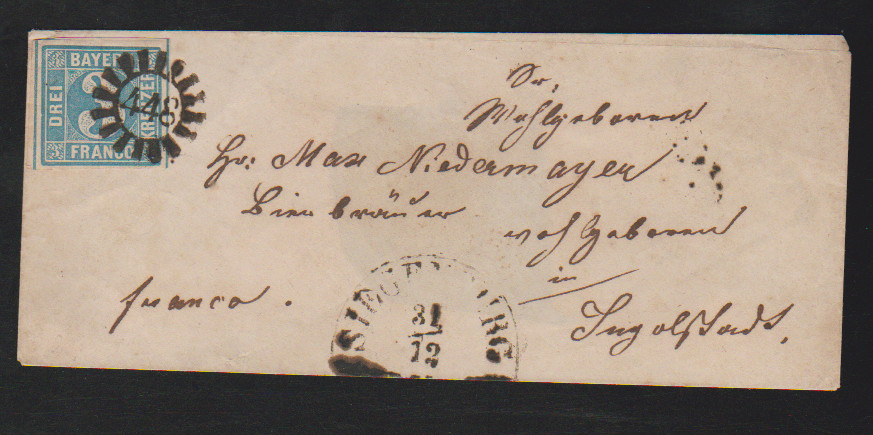 BAYERN
DREI
KREUZER
FRANCO
448
Sr.
Wohlgeboren
Hr: Max Niedermayer
Bierbräuer
wohlgeboren
in
Ingolstadt.
franco.
SIEGENBURG
31
12